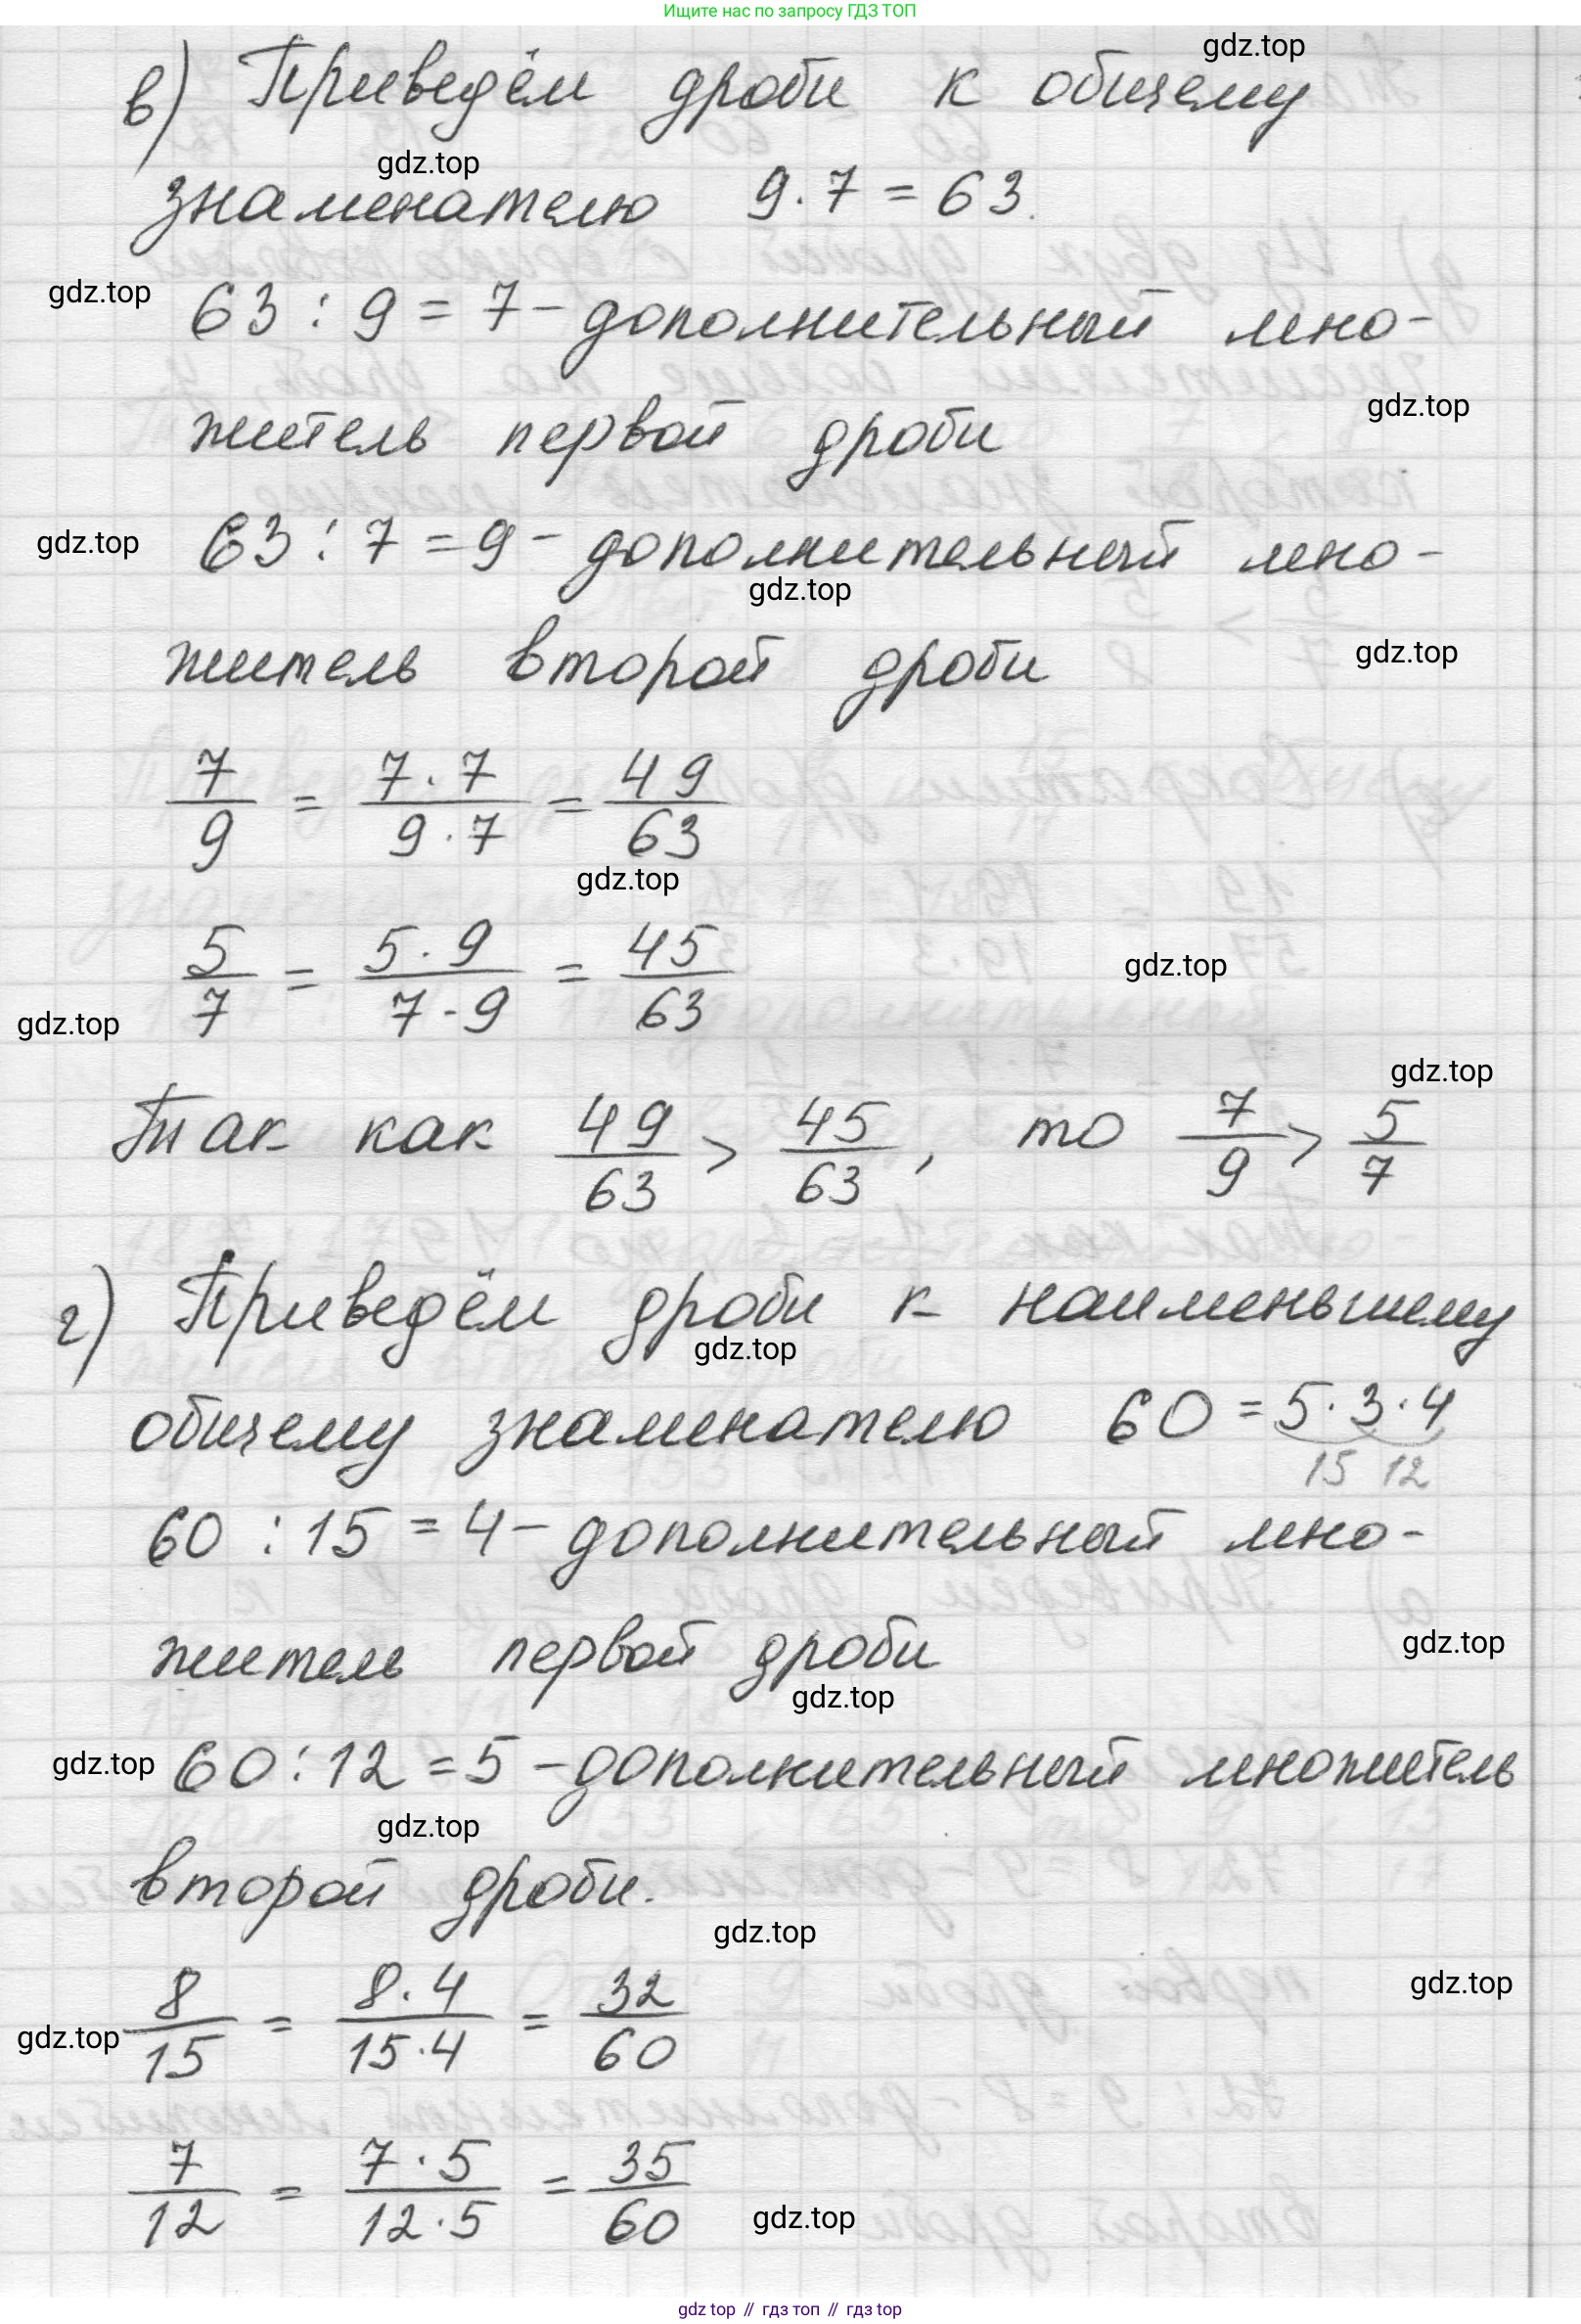 Ищите нас по запросу ГДЗ ТОП
gdz.top
в) Приведём дроби к общему
gdz.top
знаменателю 9·7=63.
gdz.top
63:9=7-дополнительный мно-
gdz.top
житель первой дроби
gdz.top
63:7=9-дополнительный мно-
gdz.top
житель второй дроби
gdz.top
7/9 = 7·7/9·7 = 49/63
gdz.top
5/7 = 5·9/7·9 = 45/63
gdz.top
gdz.top
gdz.top
Так как 49/63 > 45/63, то 7/9 > 5/7
г) Приведём дроби к наименьшему
gdz.top
общему знаменателю 60=5·3·4
15 12
60:15=4-дополнительный мно-
gdz.top
житель первой дроби
gdz.top
gdz.top
60:12=5-дополнительный множитель
gdz.top
второй дроби.
gdz.top
gdz.top
8/15 = 8·4/15·4 = 32/60
gdz.top
7/12 = 7·5/12·5 = 35/60
gdz.top
gdz top // гдз топ // гдз top